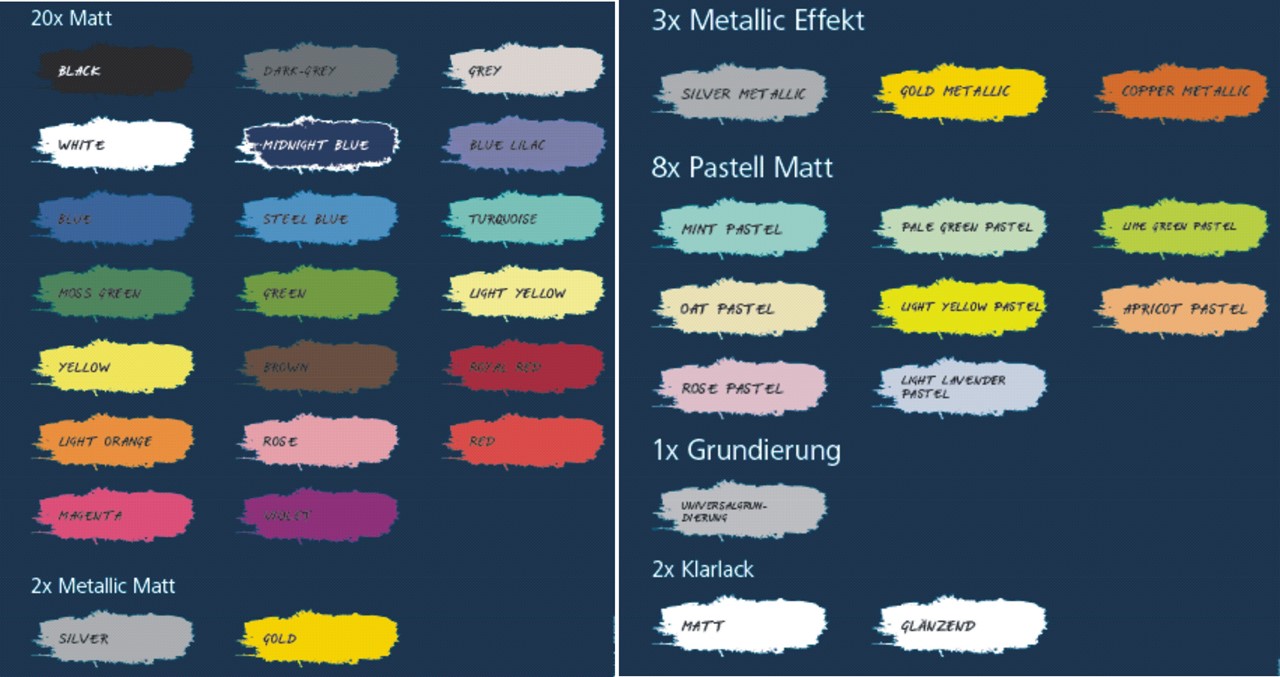 20x Matt
BLACK
DARK-GREY
GREY
WHITE
MIDNIGHT BLUE
BLUE LILAC
BLUE
STEEL BLUE
TURQUOISE
MOSS GREEN
GREEN
LIGHT YELLOW
YELLOW
BROWN
ROYAL RED
LIGHT ORANGE
ROSE
RED
MAGENTA
VIOLET
2x Metallic Matt
SILVER
GOLD
3x Metallic Effekt
SILVER METALLIC
GOLD METALLIC
COPPER METALLIC
8x Pastell Matt
MINT PASTEL
PALE GREEN PASTEL
LIME GREEN PASTEL
OAT PASTEL
LIGHT YELLOW PASTEL
APRICOT PASTEL
ROSE PASTEL
LIGHT LAVENDER
PASTEL
1x Grundierung
UNIVERSALGRUN-
DIERUNG
2x Klarlack
MATT
GLÄNZEND